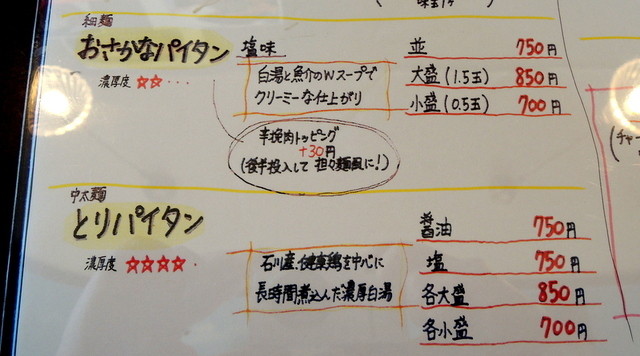 細麺
おさかなパイタン
濃厚度 ☆☆・・・
塩味
白湯と魚介のWスープで
クリーミーな仕上がり
並 750円
大盛(1.5玉) 850円
小盛(0.5玉) 700円
辛挽肉トッピング
+30円
(後半投入して 担々麺風に!)
中太麺
とりパイタン
濃厚度 ☆☆☆☆・
石川産・健康鶏を中心に
長時間煮込んだ濃厚白湯
醤油 750円
塩 750円
各大盛 850円
各小盛 700円